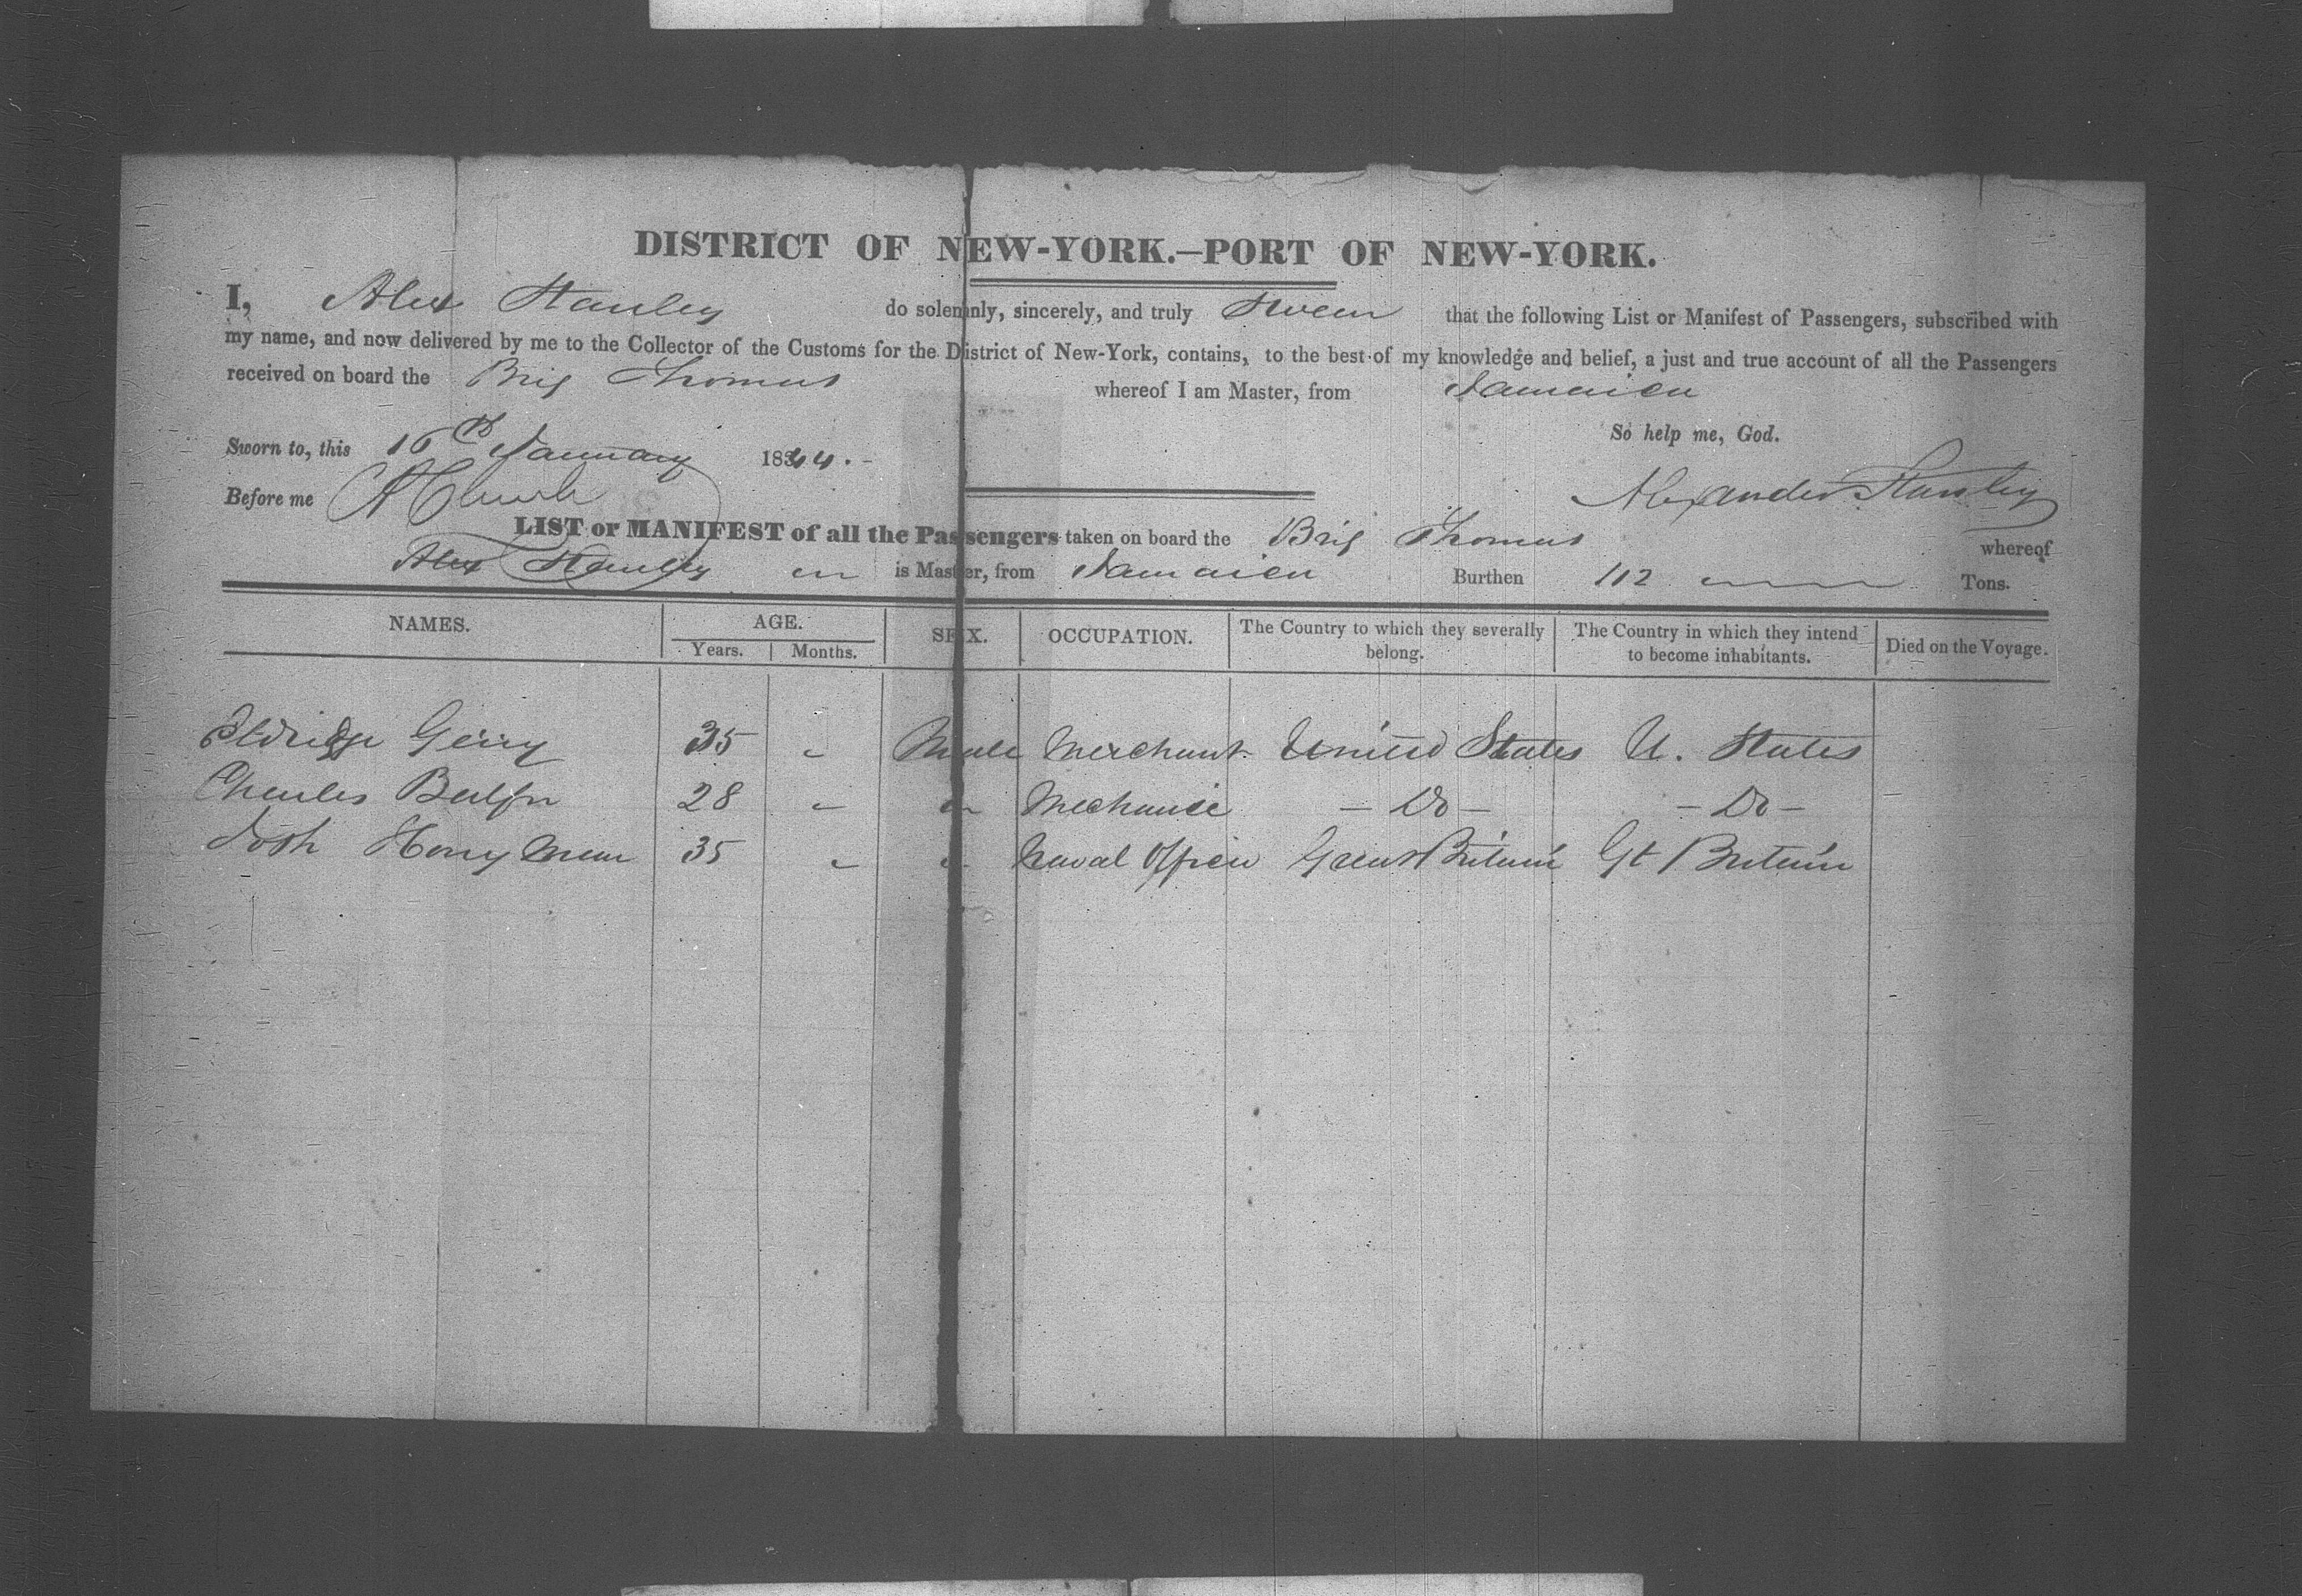 DISTRICT OF NEW-YORK.—PORT OF NEW-YORK.
I, Alex Stanley do solemnly, sincerely, and truly Swear that the following List or Manifest of Passengers, subscribed with
my name, and now delivered by me to the Collector of the Customs for the District of New-York, contains, to the best of my knowledge and belief, a just and true account of all the Passengers
received on board the Brig Thomas whereof I am Master, from Jamaica
So help me, God.
Sworn to, this 16th January 1844.
Before me Alexander Stanley
LIST or MANIFEST of all the Passengers taken on board the Brig Thomas whereof
Alex Stanley is Master, from Jamaica Burthen 112 Tons.
NAMES. AGE. SEX. OCCUPATION. The Country to which they severally belong. The Country in which they intend to become inhabitants. Died on the Voyage.
Years. Months.
Eldridge Gerry 35 " Male Merchant United States U. States
Charles 28 " " Mechanic — Do — — Do —
Josh Honyman 35 " " Naval Officer Great Britain Gt Britain